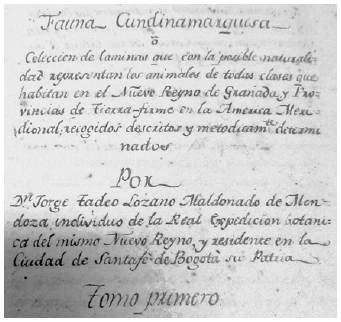 Fauna Cundinamarquesa
ó
Coleccion de laminas que con la posible naturali-
dad representan los animales de todas clases que
habitan en el Nuevo Reyno de Granada, y Pro-
vincias de Tierra-firme en la America Meri-
dional, recogidos descritos y metodicam.te determi
nados.
Por
Dn. Jorge Tadeo Lozano Maldonado de Men-
doza, individuo de la Real Expedicion botani-
ca del mismo Nuevo Reyno, y residente en la
Ciudad de Santafe de Bogotá su Patria
Tomo primero.